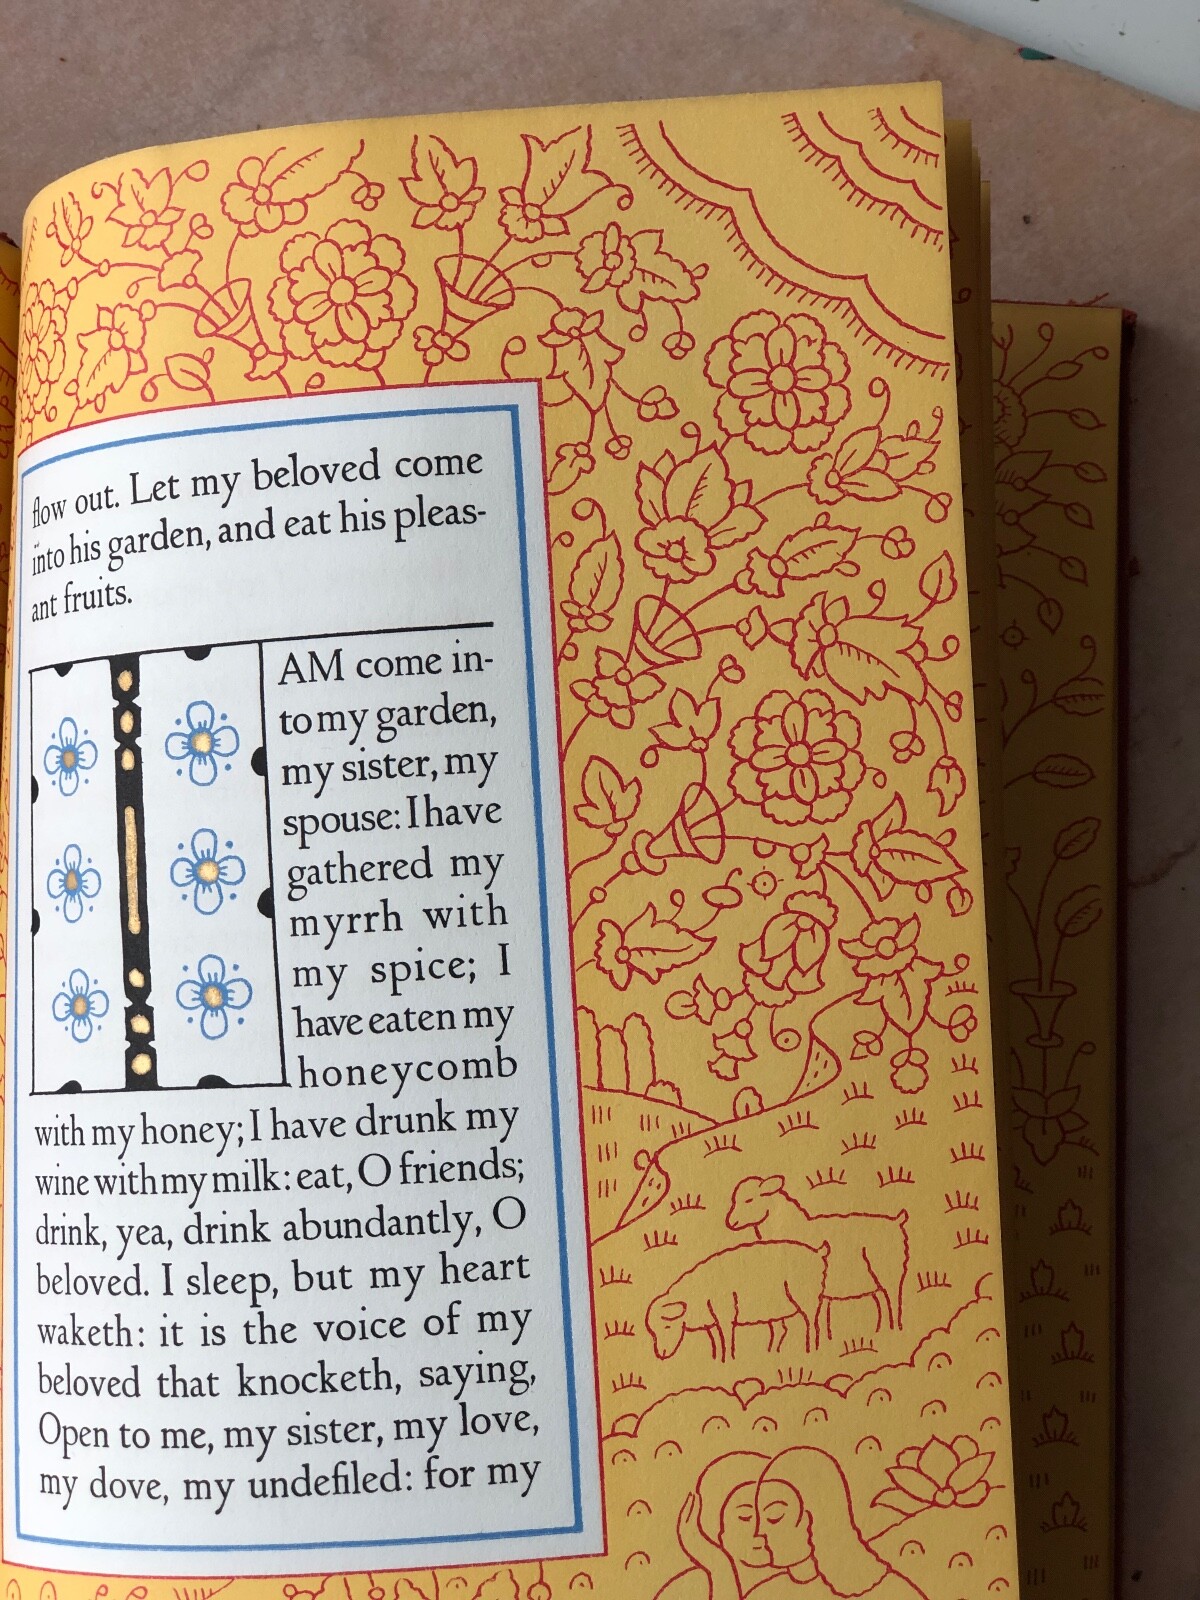 flow out. Let my beloved come
into his garden, and eat his pleas-
ant fruits.
I AM come in-
to my garden,
my sister, my
spouse: I have
gathered my
myrrh with
my spice; I
have eaten my
honeycomb
with my honey; I have drunk my
wine with my milk: eat, O friends;
drink, yea, drink abundantly, O
beloved. I sleep, but my heart
waketh: it is the voice of my
beloved that knocketh, saying,
Open to me, my sister, my love,
my dove, my undefiled: for my